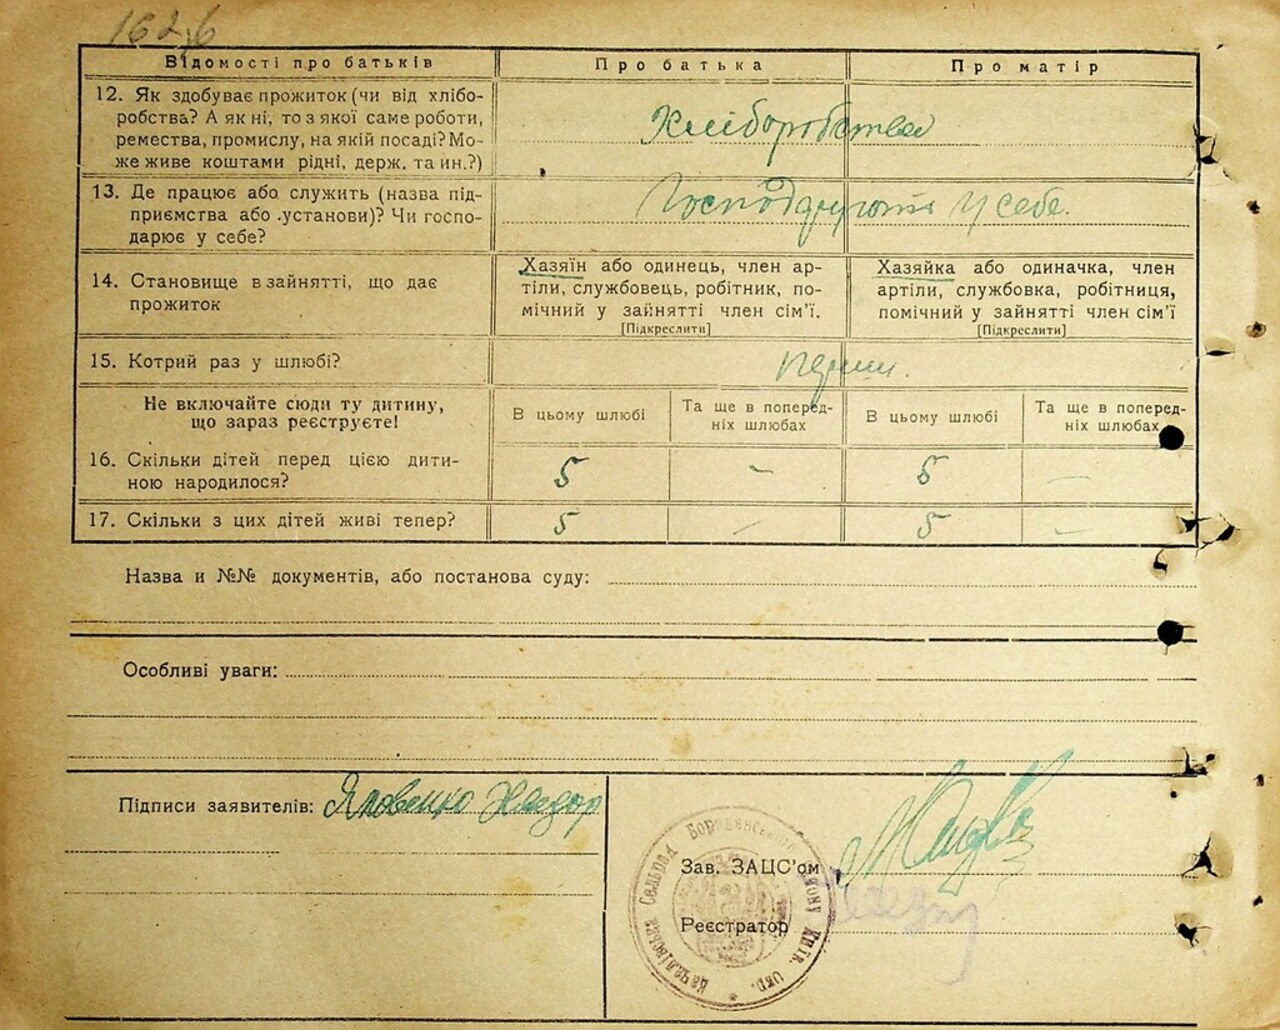 162
Відомості про батьків
Про батька
Про матір
12. Як здобуває прожиток (чи від хлібо-
робства? А як ні, то з якої саме роботи,
ремества, промислу, на якій посаді? Мо-
же живе коштами рідні, держ. та ин.?)
Хліборобства
13. Де працює або служить (назва під-
приємства або установи)? Чи госпо-
дарює у себе?
Господарють у себе.
14. Становище в зайнятті, що дає
прожиток
Хазяїн або одинець, член ар-
тілі, службовець, робітник, по-
мічний у зайнятті член сім'ї.
[Підкреслити]
Хазяйка або одиначка, член
артіли, службовка, робітниця,
помічний у зайнятті член сім'ї
[Підкреслити]
15. Котрий раз у шлюбі?
Не включайте сюди ту дитину,
що зараз реєструєте!
В цьому шлюбі
Та ще в поперед-
ніх шлюбах
В цьому шлюбі
Та ще в поперед-
ніх шлюбах
16. Скільки дітей перед цією дити-
ною народилося?
5 – 5 –
17. Скільки з цих дітей живі тепер?
5 – 5 –
Назва и №№ документів, або постанова суду:
Особливі уваги:
Підписи заявителів: Яковенко
Зав. ЗАЦС'ом
Реєстратор
Сельрад Бородянського району Київ. окр.